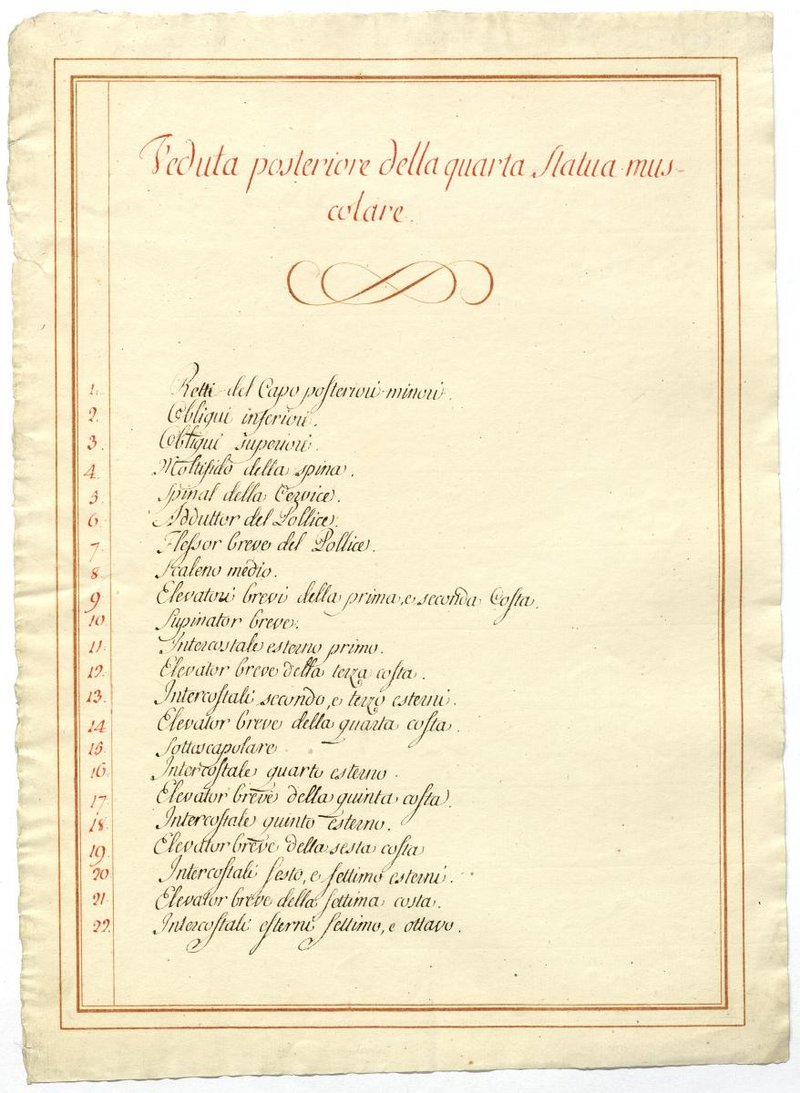 Veduta posteriore della quarta Statua mus-
colare.
1. Retti del Capo posteriori minori.
2. Obliqui inferiori.
3. Obliqui superiori.
4. Moltifido della spina.
5. Spinal della Cervice.
6. Adduttor del Pollice.
7. Flessor breve del Pollice.
8. Scaleno medio.
9 Elevatori brevi della prima, e seconda Costa.
10 Supinator breve.
11. Intercostale esterno primo.
12. Elevator breve della terza costa.
13. Intercostali secondo, e terzo esterni.
14 Elevator breve della quarta costa.
15. Sottoscapolare
16. Intercostale quarto esterno.
17. Elevator breve della quinta costa.
18. Intercostale quinto esterno.
19. Elevator breve della sesta costa
20 Intercostali sesto, e settimo esterni.
21 Elevator breve della settima costa.
22. Intercostali esterni settimo, e ottavo.